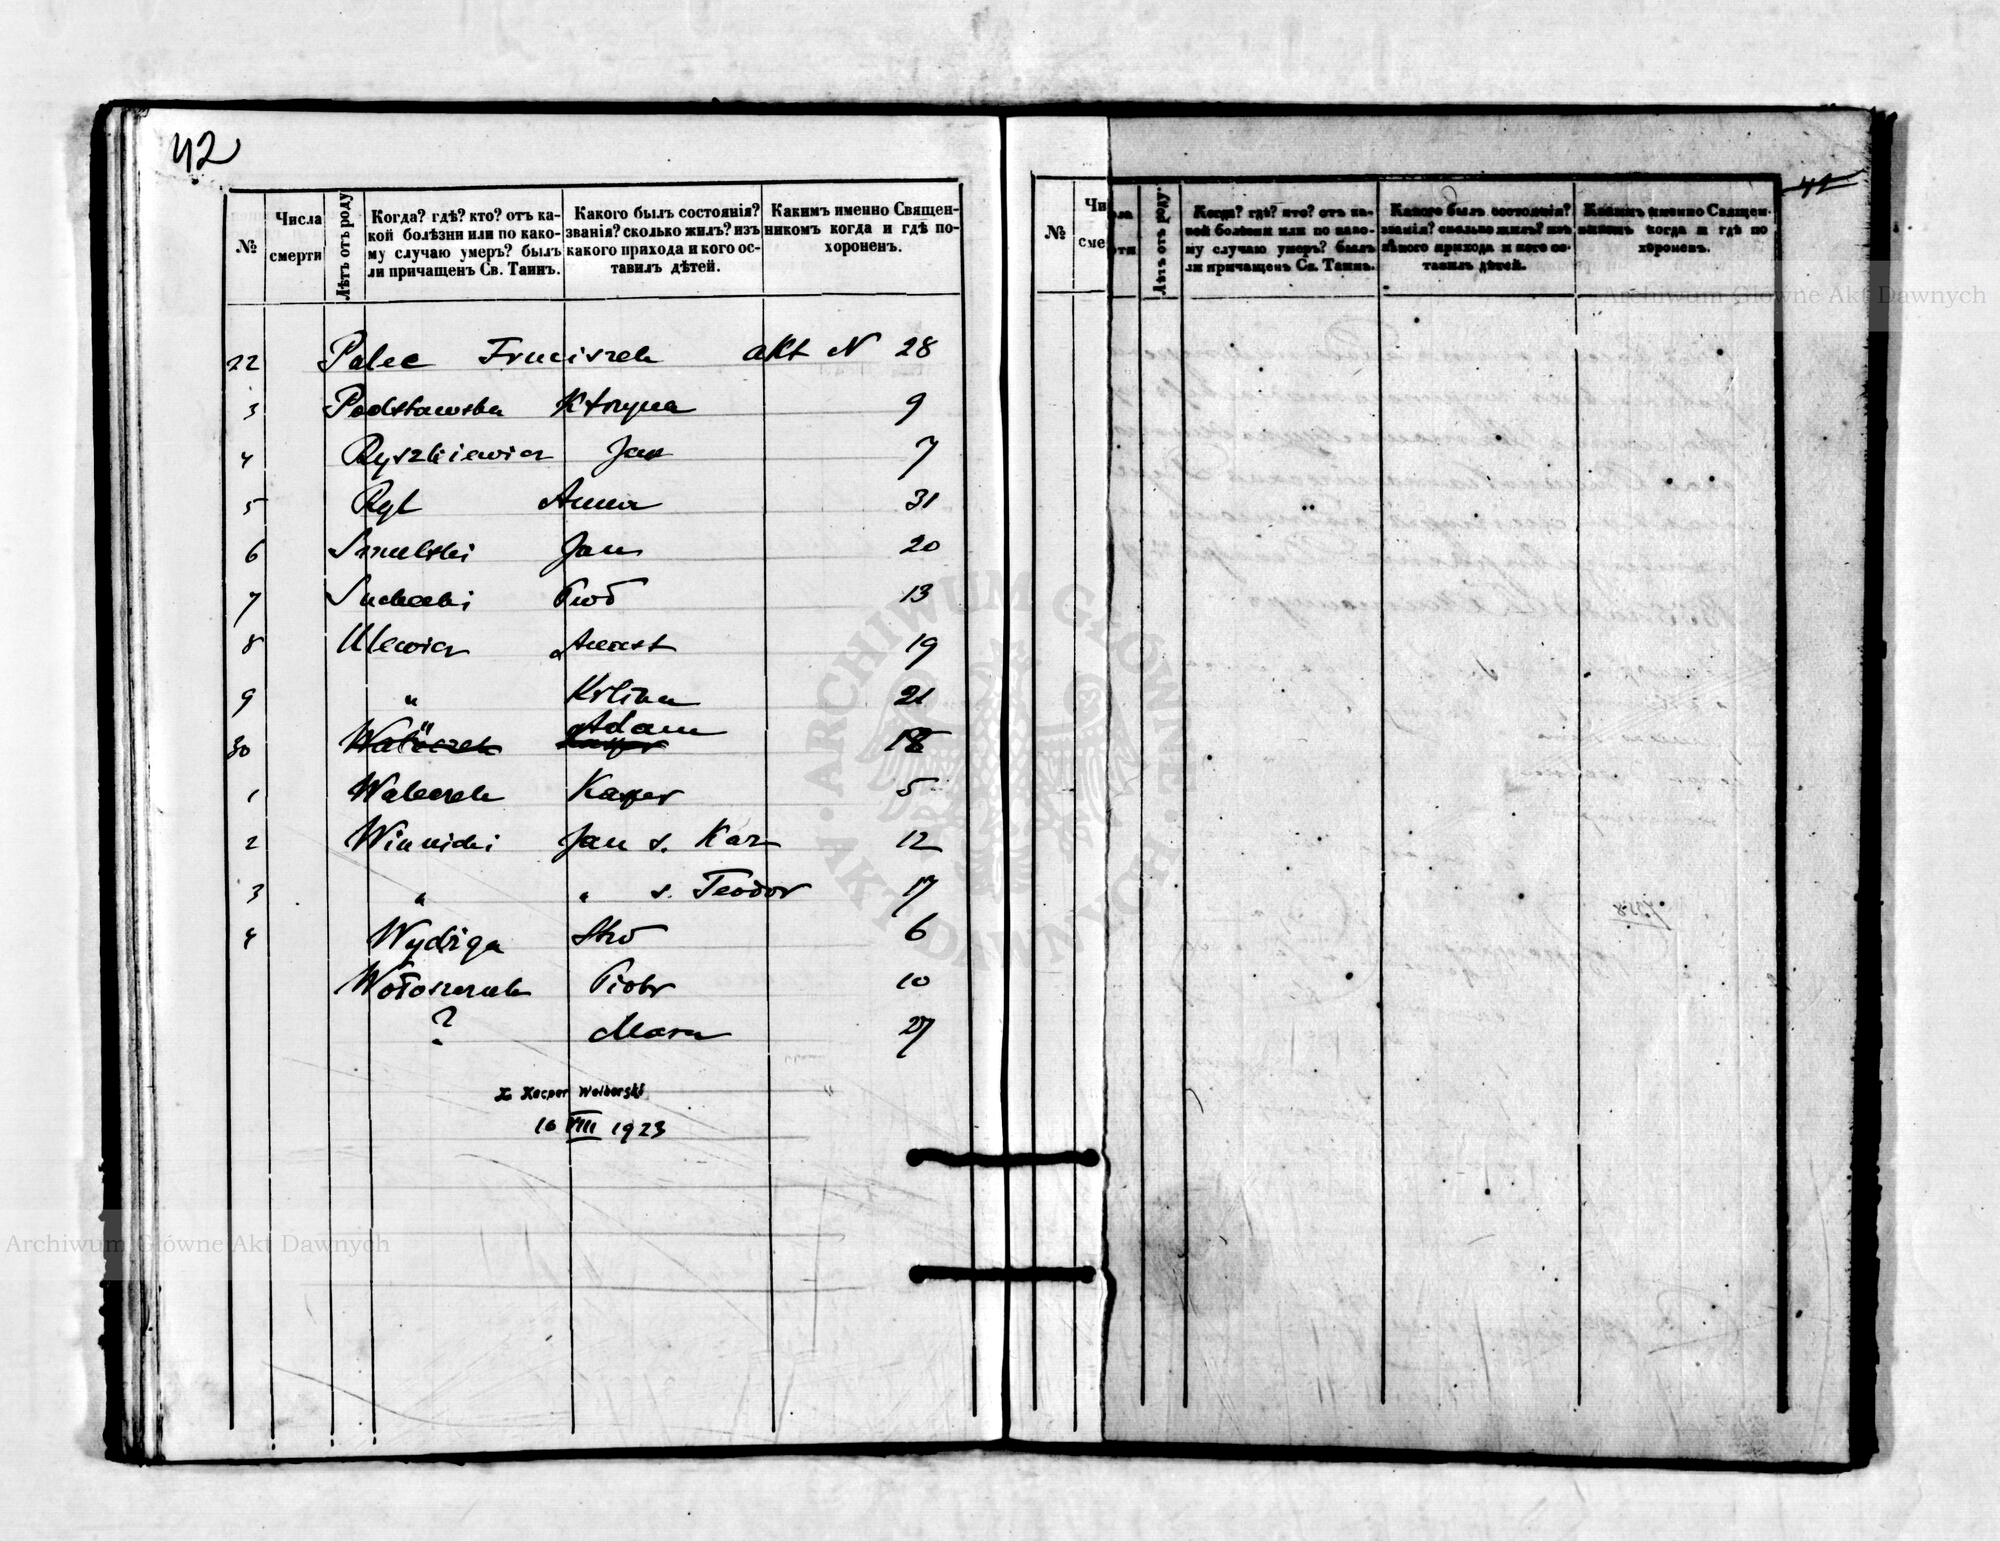 42
№
Числа смерти
Лѣтъ отъ роду
Когда? гдѣ? кто? отъ ка-
кой болѣзни или по како-
му случаю умеръ? былъ
ли причащенъ Св. Таинъ.
Какого былъ состоянія?
званія? сколько жилъ? изъ
какого прихода и кого ос-
тавилъ дѣтей.
Какимъ именно Священ-
никомъ когда и гдѣ по-
хороненъ.
22 Palec Franciszek akt N 28
3 Podstawska Ktrzyna 9
4 Ryszkiewicz Jan 7
5 Ryl Anna 31
6 Smulski Jan 20
7 Suchecki 13
8 Ulewicz 19
9 " 21
30 " Adam 18
1 Kasper 5
2 Winnicki Jan s. Kaz 12
3 " " s. Teodor 17
4 Wydżga 6
Wołoszczuk Piotr 10
? 27
X. Kacper Wolborski
16 VIII 1923
41
№
Чи
сме
ла
рти
Лѣтъ отъ роду.
Когда? гдѣ? кто? отъ ка-
кой болѣзни или по како-
му случаю умеръ? былъ
ли причащенъ Св. Таинъ.
Какого былъ состоянія?
званія? сколько жилъ? изъ
какого прихода и кого ос-
тавилъ дѣтей.
Какимъ именно Священ-
никомъ когда и гдѣ по
хороненъ.
Archiwum Główne Akt Dawnych
ARCHIWUM GŁÓWNE AKT DAWNYCH
Archiwum Główne Akt Dawnych